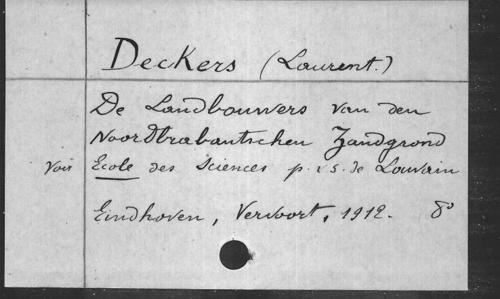 Deckers (Laurent.)
De Landbouwers van den
Noordbrabantschen Zandgrond
Voir Ecole des Sciences p. & s. de Louvain
Eindhoven, Vervoort, 1912. 8°